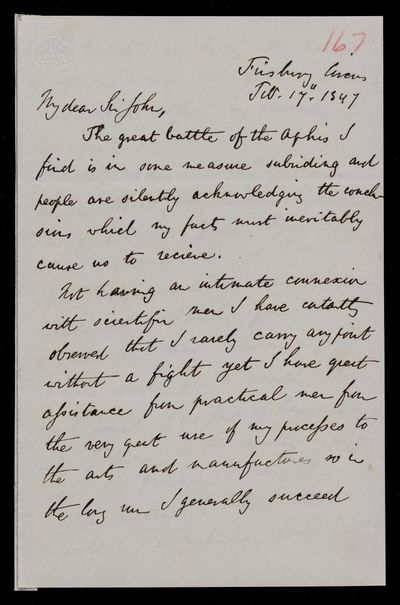 167
Finsbury Circus
Feb. 17th 1847
My dear Sir John,
The great battle of the Aphis I
find is in some measure subsiding and
people are silently acknowledging the conclu
sions which my facts must inevitably
cause us to recieve.
Not having an intimate connexion
with scientific men I have
observed that I rarely carry any point
without a fight yet I have great
assistance from practical men from
the very great use of my processes to
the arts and manufactures so in
the long run I generally succeed